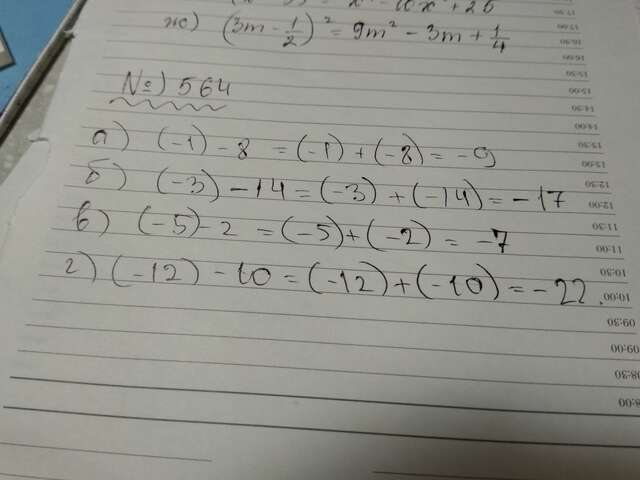 ж) (3m - 1/2)² = 9m² - 3m + 1/4
№) 564
а) (-1) - 8 = (-1) + (-8) = -9
б) (-3) - 14 = (-3) + (-14) = -17
в) (-5) - 2 = (-5) + (-2) = -7
г) (-12) - 10 = (-12) + (-10) = -22.
17:30
17:00
16:30
16:00
15:30
15:00
14:30
14:00
13:30
13:00
12:30
12:00
11:30
11:00
10:30
10:00
09:30
09:00
08:30
8:00